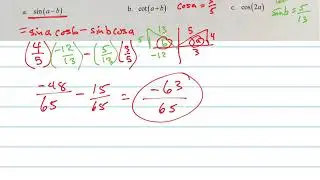 a. sin(a−b) b. cot(a+b) cos a = 3/5 c. cos(2a) sin b = 5/13
= sin a cos b − sin b cos a
(4/5)(−12/13) − (5/13)(3/5) 5 13 b −12 5 4 a 3
−48/65 − 15/65 = −63/65